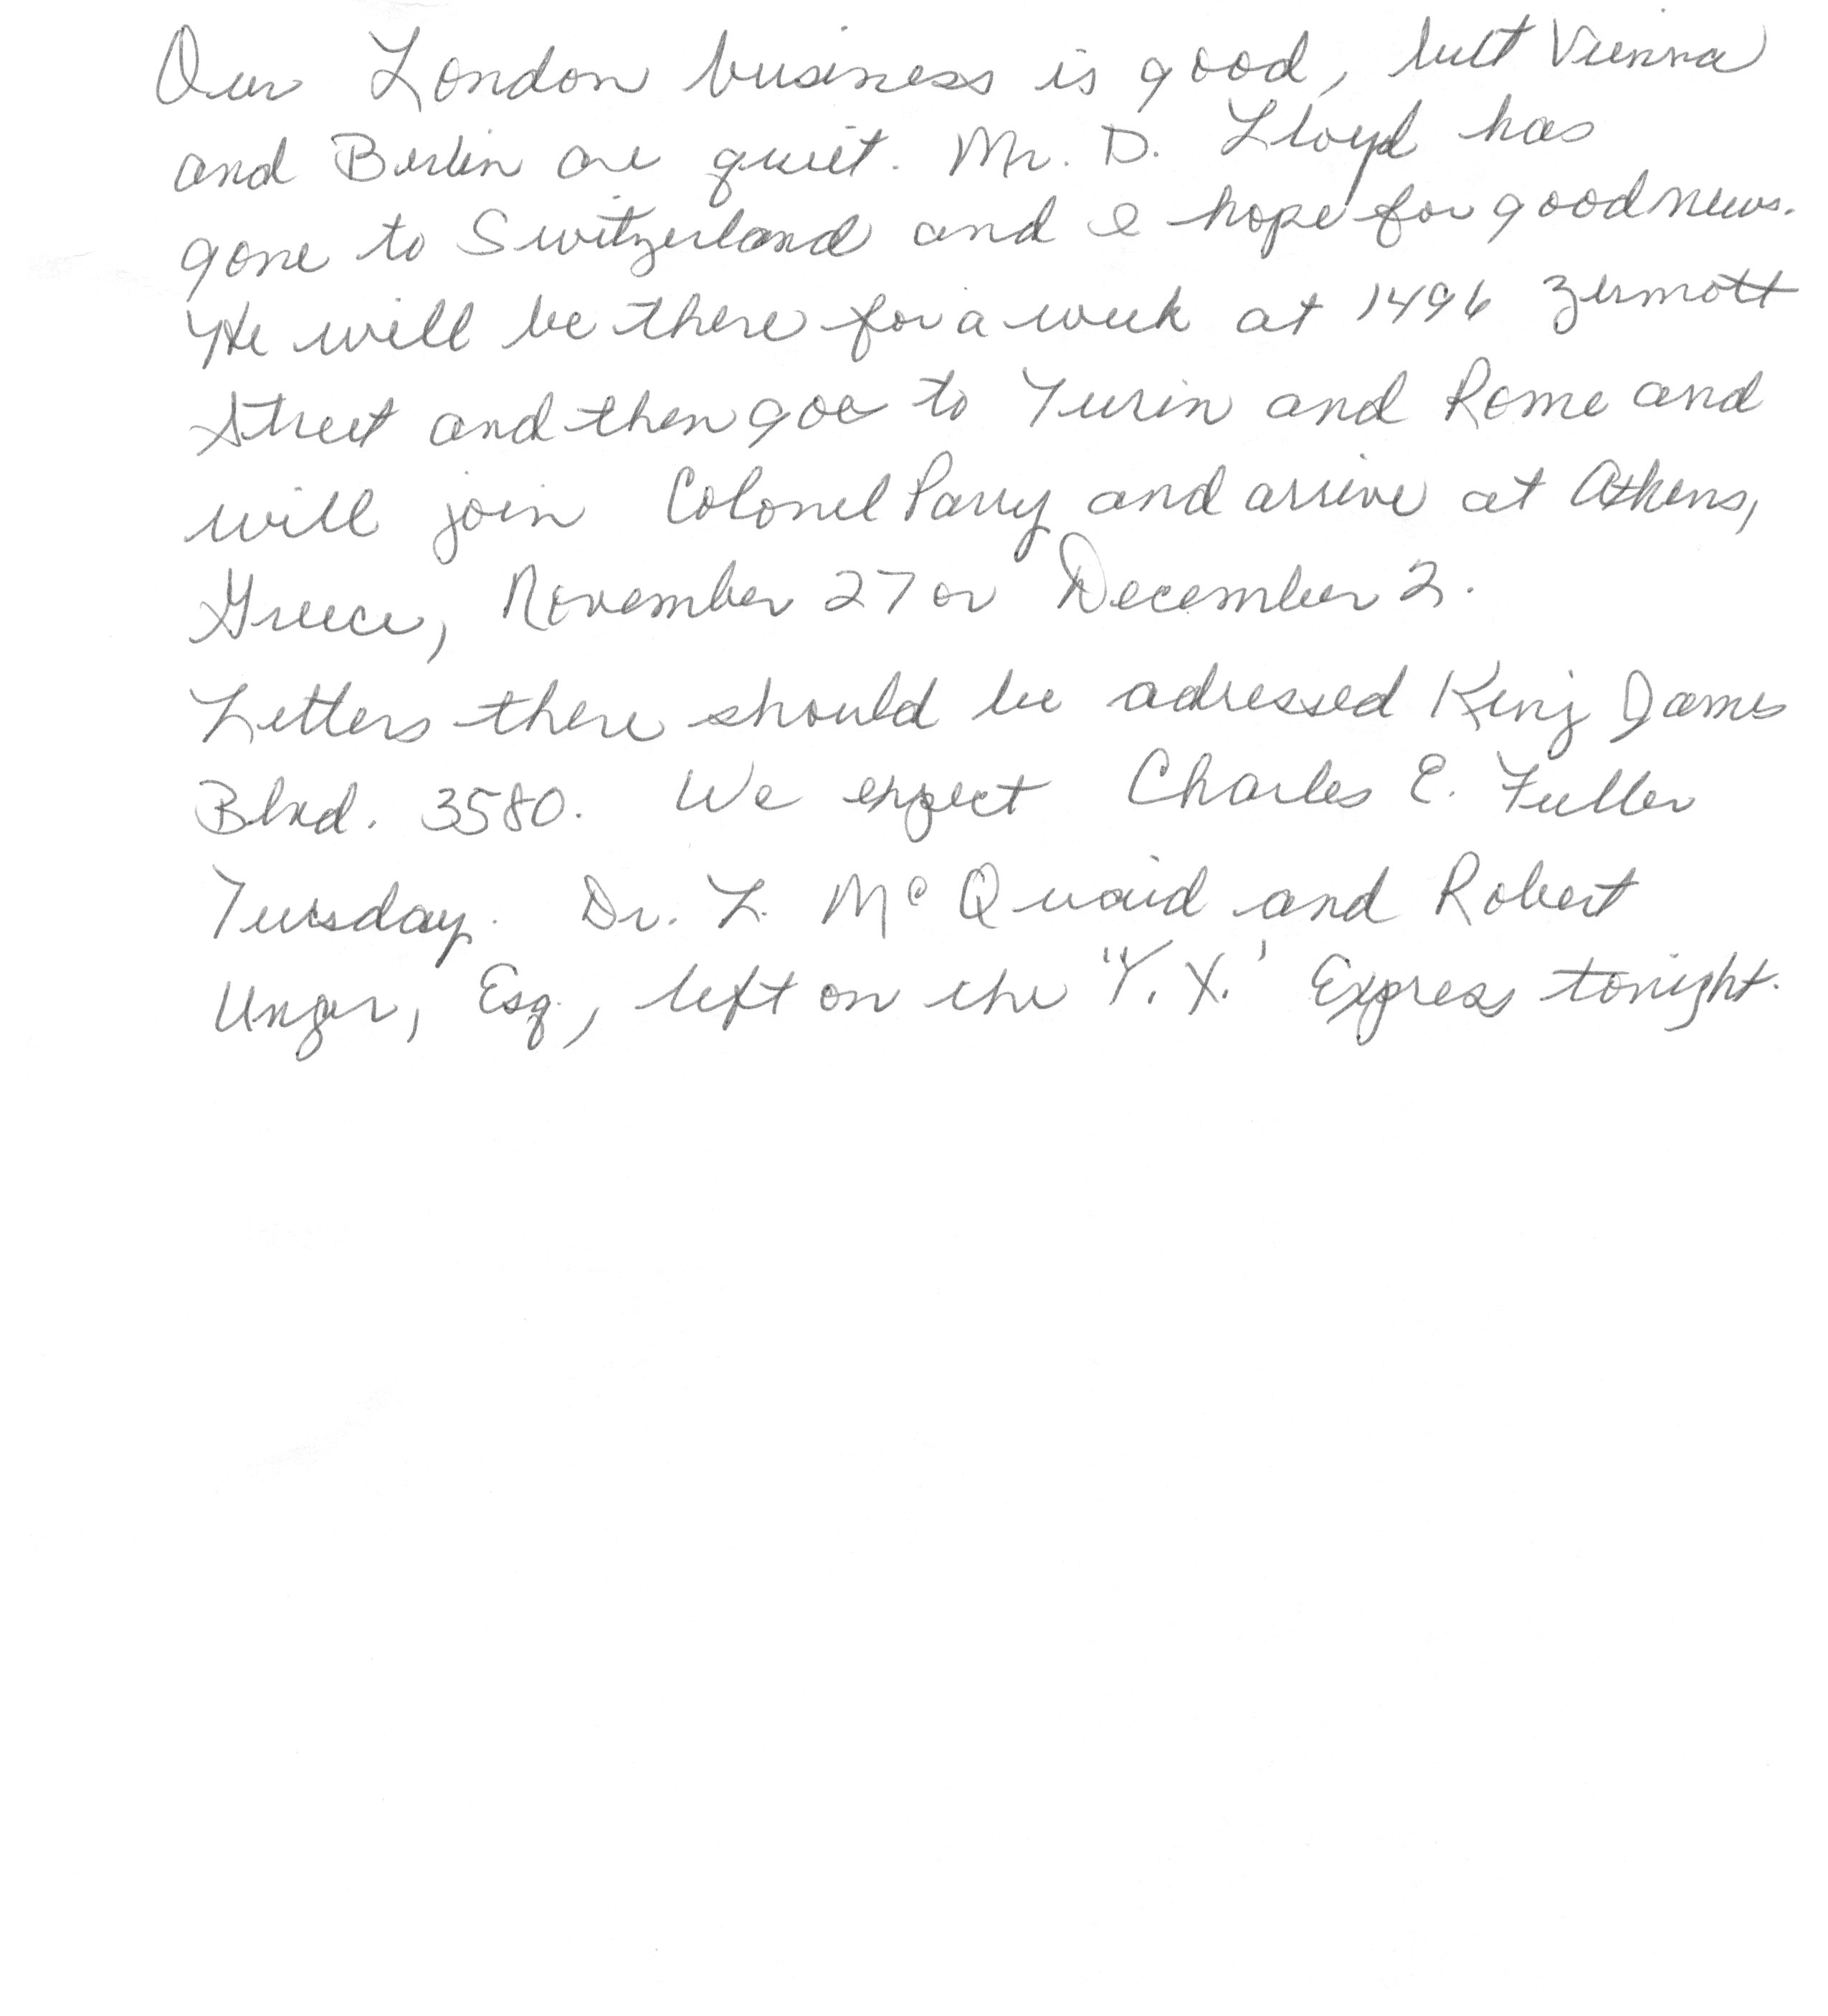 Our London business is good, but Vienna
and Berlin are quiet. Mr. D. Lloyd has
gone to Switzerland and I hope for good news.
He will be there for a week at 1496 Zermott
Street and then goe to Turin and Rome and
will join Colonel Parry and arrive at Athens,
Greece, November 27 or December 2.
Letters there should be adressed King James
Blvd. 3580. We expect Charles E. Fuller
Tuesday. Dr. L. McQuaid and Robert
Unger, Esq., left on the "Y.X.' Express tonight.